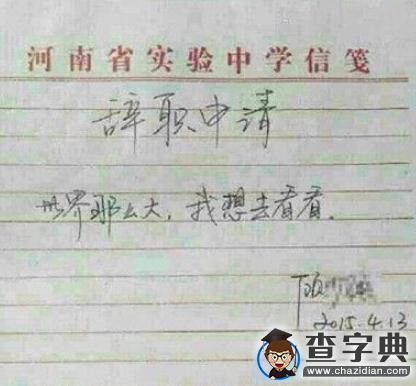 河南省实验中学信笺
辞职申请
世界那么大，我想去看看。
顾
2015.4.13
查字典
www.chazidian.com